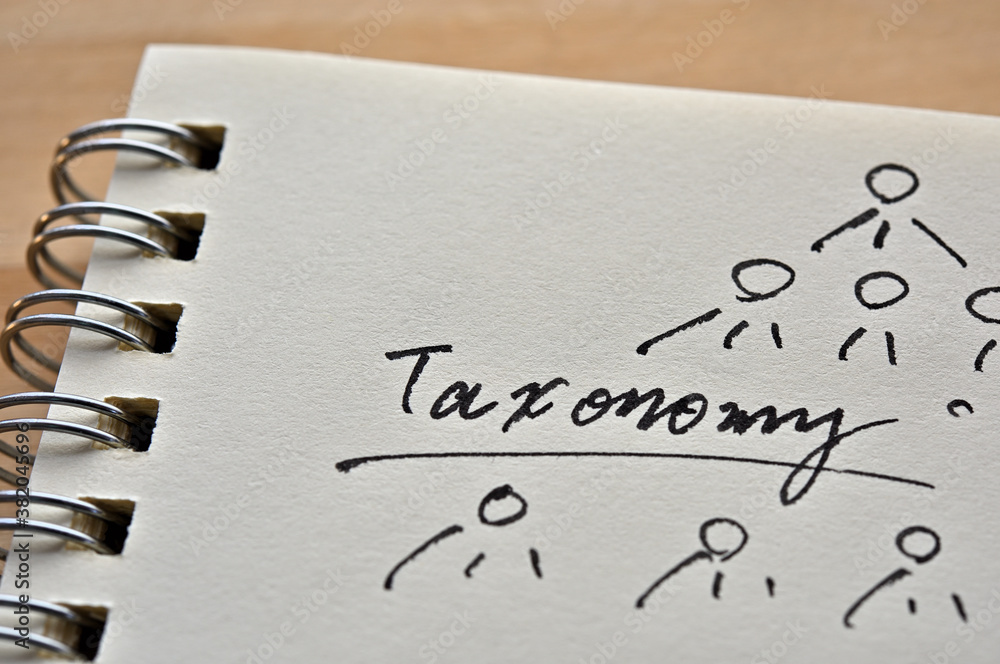 Taxonomy
Adobe Stock | #382045696